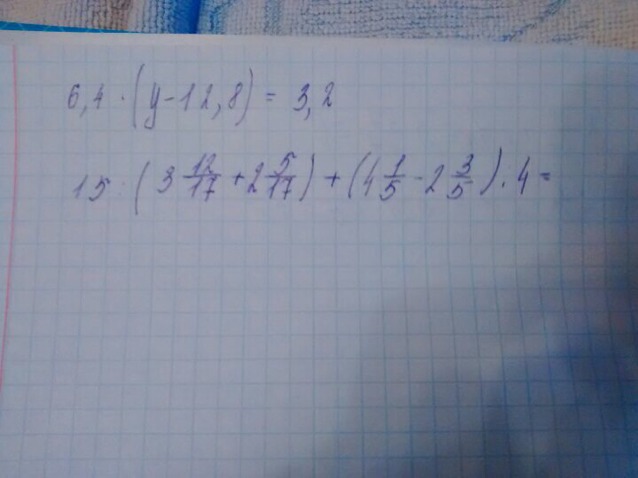 6,4 · (y - 12,8) = 3,2
15 : (3 12/17 + 2 5/17) + (4 1/5 - 2 3/5) · 4 =